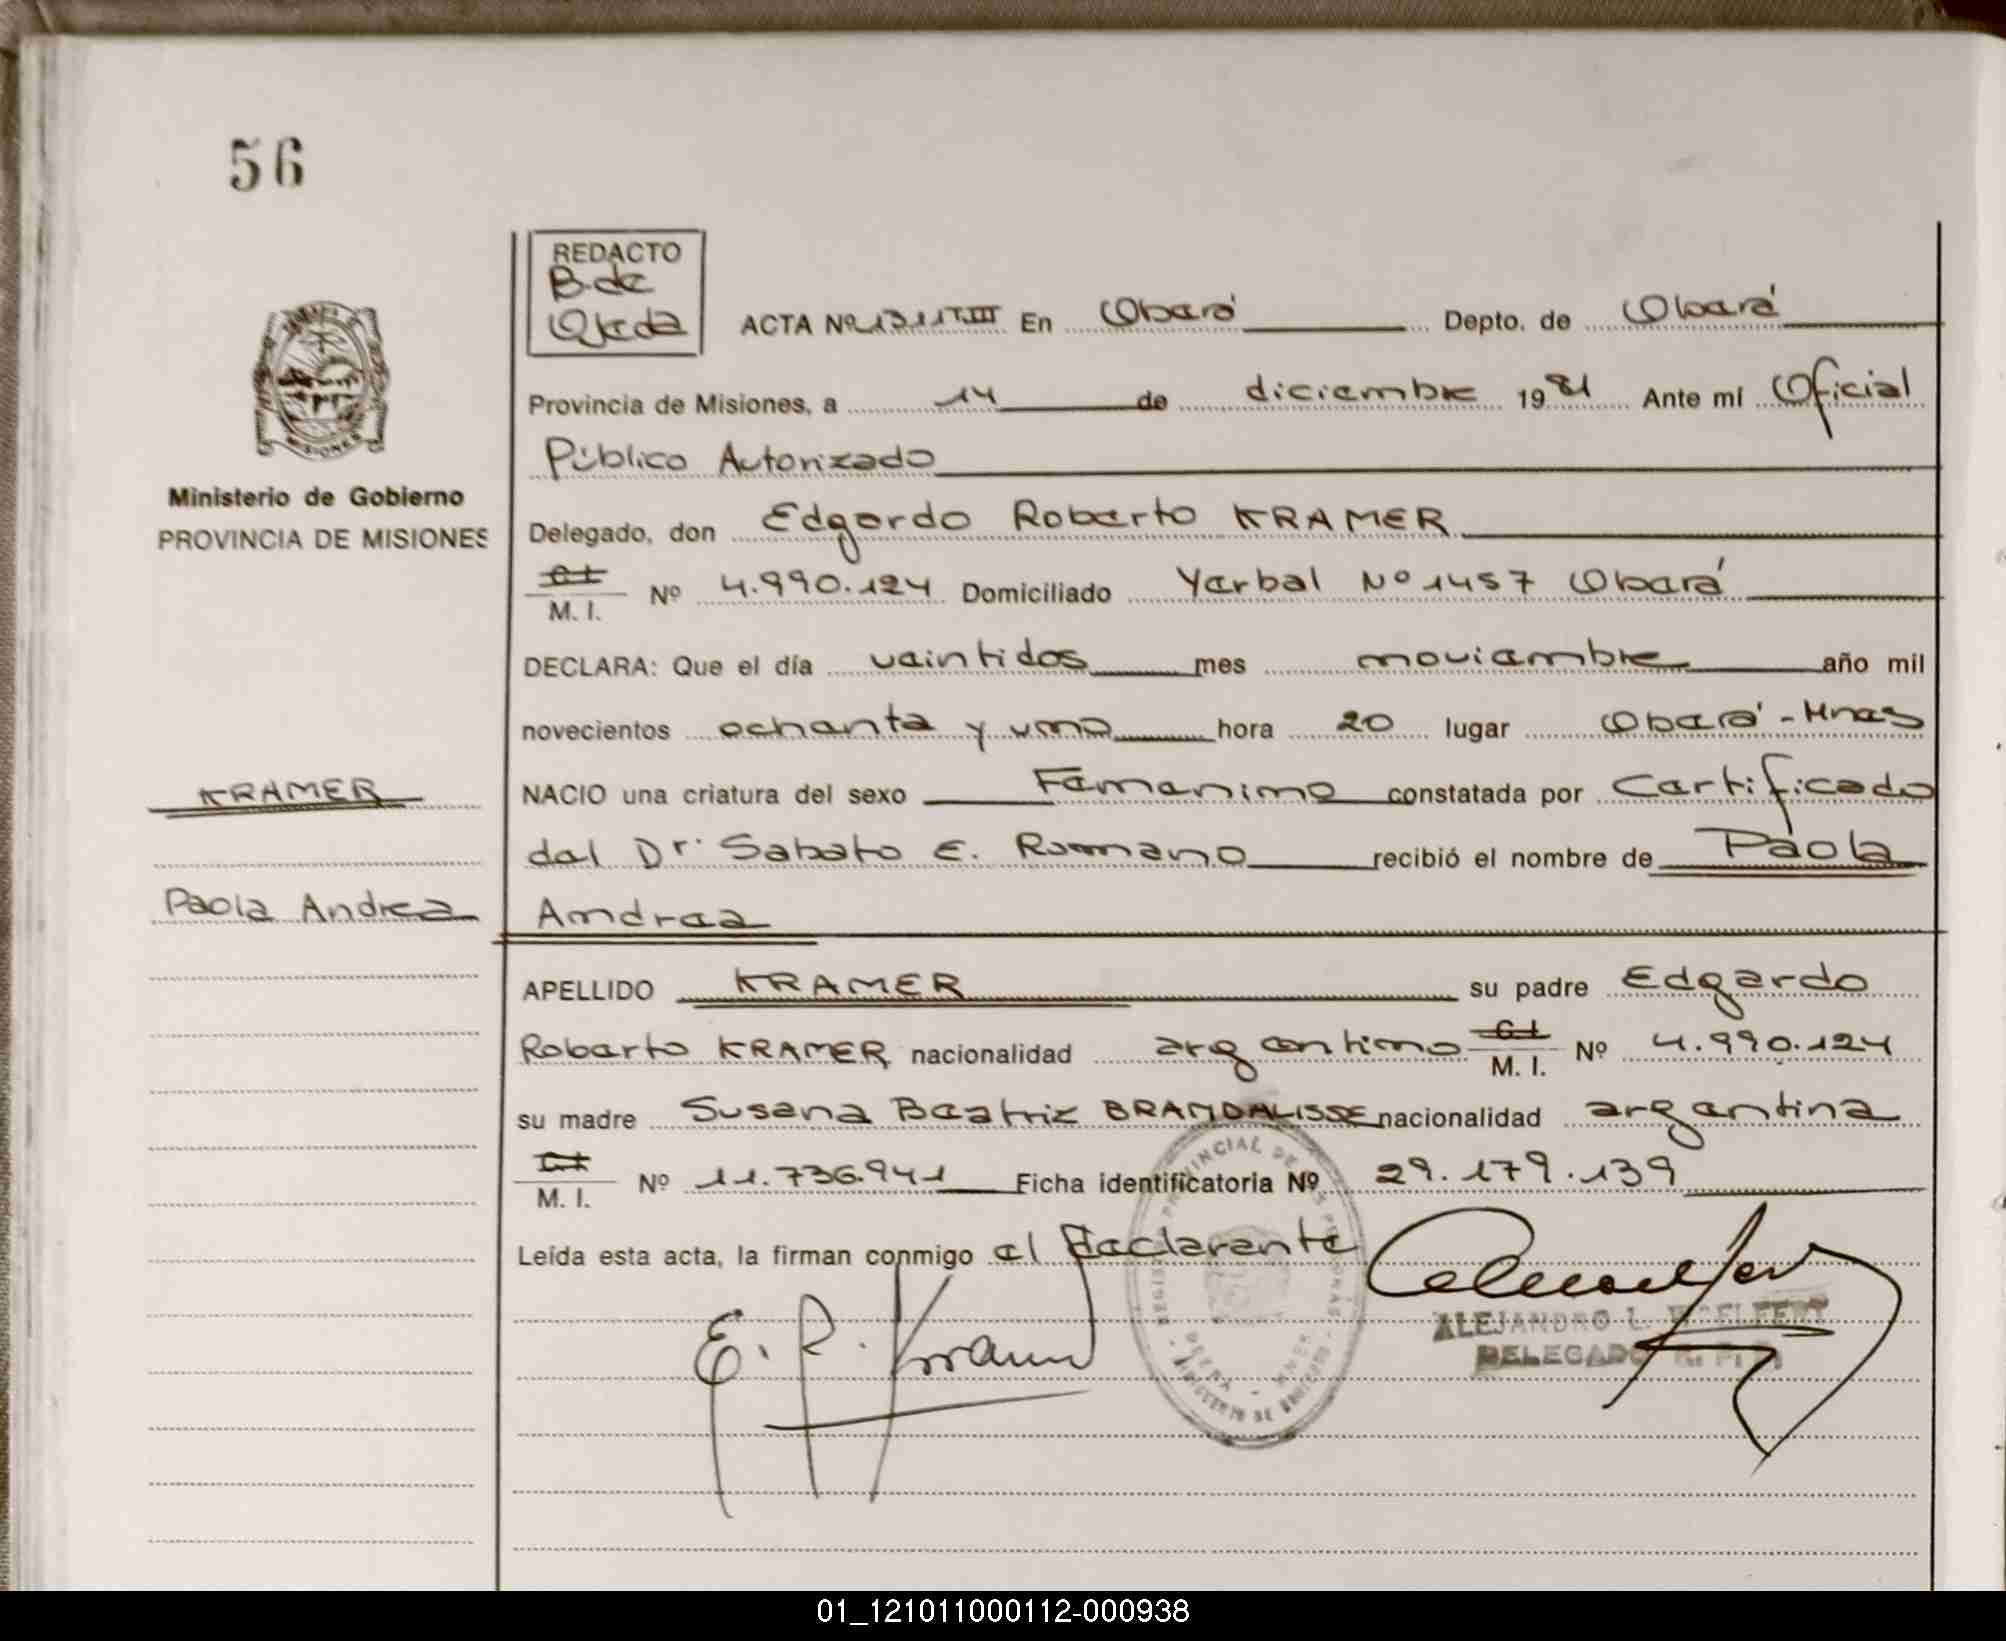 56
REDACTO
B. de
Ojeda
ACTA Nº 1311 T.III En Oberá Depto. de Oberá
Provincia de Misiones, a 14 de diciembre 1981 Ante mí Oficial
Público Autorizado
Ministerio de Gobierno
PROVINCIA DE MISIONES
Delegado, don Edgardo Roberto KRAMER
C.I.
M. I. Nº 4.990.124 Domiciliado Yerbal Nº 1457 Oberá
DECLARA: Que el día veintidos mes noviembre año mil
novecientos ochenta y uno hora 20 lugar Oberá - Mnes
KRAMER
NACIO una criatura del sexo Femenino constatada por Certificado
del Dr. Sabato E. Romano recibió el nombre de Paola
Paola Andrea
Andrea
APELLIDO KRAMER su padre Edgardo
Roberto KRAMER nacionalidad argentino C.I. M. I. Nº 4.990.124
su madre Susana Beatriz BRANDALISSE nacionalidad argentina
C.I.
M. I. Nº 11.736.941 Ficha identificatoria Nº 29.179.139
Leída esta acta, la firman conmigo el Declarante
E. R. Kramer
ALEJANDRO L.
DELEGADO
01_121011000112-000938